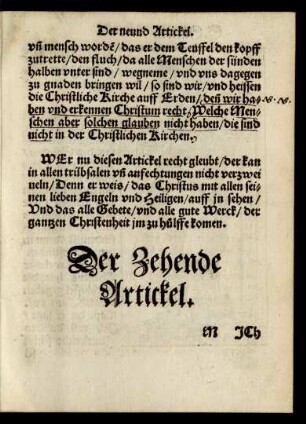 Der neund Artickel.
vñ mensch wordẽ/das er dem Teuffel den kopff
zutrette/den fluch/da alle Menschen der sünden
halben vnter sind/wegneme/vnd vns dagegen
zu gnaden bringen wil/so sind wir/vnd heissen
die Christliche Kirche auff Erden/deñ wir ha-
ben vnd erkennen Christum recht/Welche Men-
schen aber solchen glauben nicht haben/die sind
nicht in der Christlichen Kirchen.
WEr nu diesen Artickel recht gleubt/der kan
in allen trübsalen vñ anfechtungen nicht verzwei
ueln/Denn er weis/das Christus mit allen sei-
nen lieben Engeln vnd Heiligen/auff jn sehen/
Vnd das alle Gebete/vnd alle gute Werck/der
gantzen Christenheit jm zu hülffe komen.
Der Zehende
Artickel.
M JCh